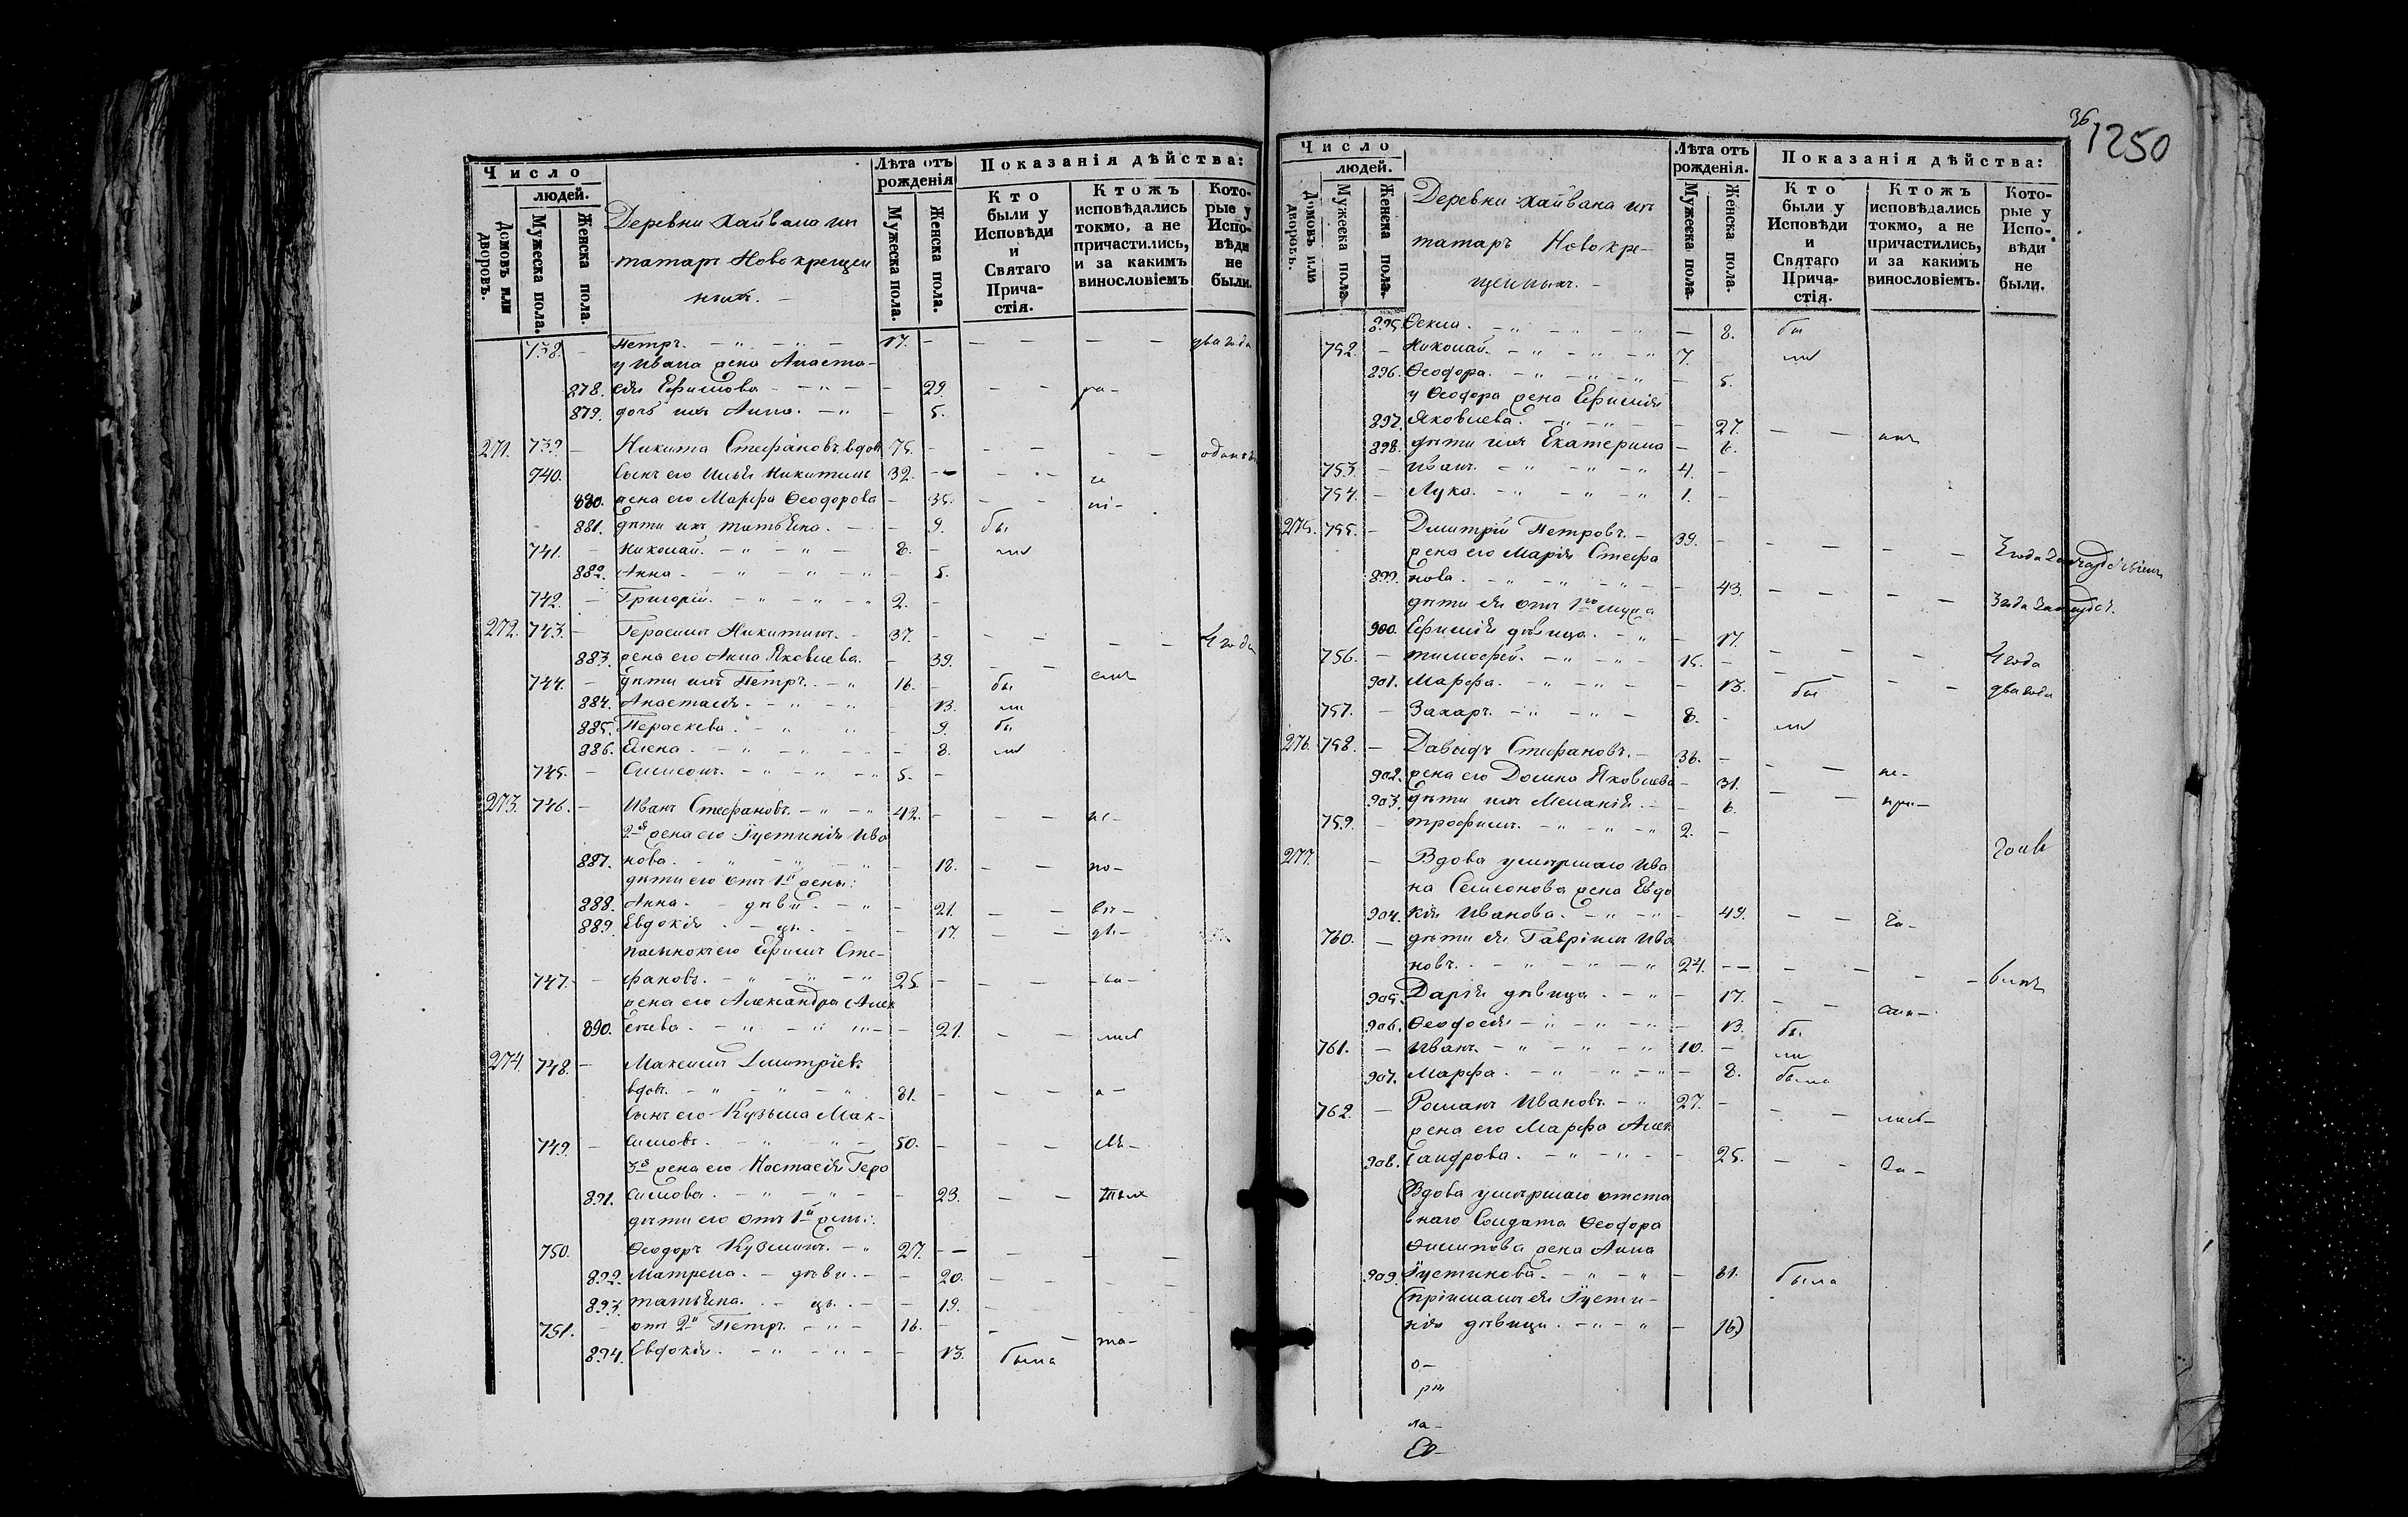 Число
людей.
Домовъ или дворовъ.
Мужеска пола.
Женска пола.
Деревни Хайвана изъ
татаръ Новокрещен
ныхъ. —
Лѣта отъ рожденія
Мужеска пола.
Женска пола.
Показанія дѣйства:
Кто были у Исповѣди и Святаго Прича-стія.
Ктожъ исповѣдались токмо, а не причастились, и за какимъ винословіемъ
Кото-рые у Испо-вѣди не были.
738. — Петръ. — " — " — 17. — два года
у Ивана жена Анаста-
878. сія Ефимова — " — 29.
879. дочь ихъ Анна. — " — 5.
271. 739. — Никита Стефановъ вдовъ 75. —
740. Сынъ его Илья Никитинъ 32. —
880. жена его Марфа Ѳеодорова — 35.
881. дѣти ихъ Татьяна. — — 9. бы
741. — Николай. — " — " — 8. — ли
882. Анна. — " — " — " — 5.
742. — Григорій. — " — " — " 2. —
272. 743. — Герасимъ Никитинъ. — 37. — 4 года
883. жена его Анна Яковлева. — 39.
744. — дѣти ихъ Петръ. — " 16. — бы
884. Анастасія. — " — " — 13. ли
885. Параскева. — " — " — 9. бы
886. Елена. — " — " — " — 8. ли
745. — Симеонъ. — " — " — " 5. —
273. 746. — Иванъ Стефановъ. — " — " 42. —
2я жена его Іустинія Ива
887. нова. — " — " — " — 18. по-
дѣти его отъ 1й жены:
888. Анна. — дѣви — " — 21.
889. Евдокія — цы. — — 17.
пасынокъ его Ефимъ Сте-
747. — фановъ. — " — " — " 25 —
жена его Александра Алек
890. сѣева. — " — " — " — 21.
274. 748. — Максимъ Димитріевъ
вдовъ. — " — " — " 81. — а —
Сынъ его Кузьма Мак-
749. — симовъ. — " — " — 50. —
3я жена его Настасія Гера
891. симова. — " — " — — 23.
дѣти его отъ 1й жены:
750. Ѳеодоръ Кузминъ. — " 27. —
892. Матрена. — дѣви. — — 20.
893. Татьяна. — цы. — — 19.
751. — отъ 2й Петръ. — " — 16. —
894. Евдокія. — " — " — — 13. была та-
36
1250
Число
людей.
Домовъ или дворовъ.
Мужеска пола.
Женска пола.
Деревни Хайвана изъ
татаръ Новокре-
щенныхъ. —
Лѣта отъ рожденія.
Мужеска пола.
Женска пола.
Показанія дѣйства:
Кто были у Исповѣди и Святаго Прича-стія.
Ктожъ исповѣдались токмо, а не причастились, и за какимъ винословіемъ.
Кото-рые у Испо-вѣди не были.
895. Ѳекла. — " — " — " — 8. бы
752. — Николай. — " — " — " 7. — ли
896. Ѳеодора. — " — " — " — 5.
у Ѳеодора жена Ефимія
897. Яковлева. — " — " — — 27.
898. дѣти ихъ Екатерина — 6.
753. — Иванъ. — " — " — " 4. —
754. — Лука. — " — " — " 1. —
275. 755. — Димитрій Петровъ. — 39. —
жена его Марія Стефа
899. нова. — " — " — " — 43.
дѣти ея отъ 1го мужа
900. Ефимія дѣвица. — " — 17.
756. — Тимофей. — " — " — 15. — 4 года
901. Марфа. — " — " — — 13. бы два года
757. — Захаръ. — " — " — 8. — ли
276. 758. — Давыдъ Стефановъ. — 36. —
902. жена его Домна Яковлева — 31.
903. дѣти ихъ Меланія. — — 6. при-
759. — Трофимъ. — " — " — " 2. —
277. — Вдова умершаго Ива
на Семенова жена Евдо
904. кія Иванова. — " — " — 49.
760. — дѣти ея Гавріилъ Ива
новъ. — " — " — " 24. —
905. Дарія дѣвица. — " — 17.
906. Ѳеодосія — " — " — " — 13. бы
761. — Иванъ. — " — " — " 10. — ли
907. Марфа. — " — " — " — 8. была
762. — Романъ Ивановъ. — " 27. —
жена его Марфа Алек
908. сандрова. — " — " — — 25. за-
(Вдова умершаго отста
внаго Солдата Ѳеодора
Филипова жена Анна
909. Іустинова. — " — " — 81. была
(пріимашъ ея Іусти-
нія дѣвица. — " — " — 16)
о-
ла-